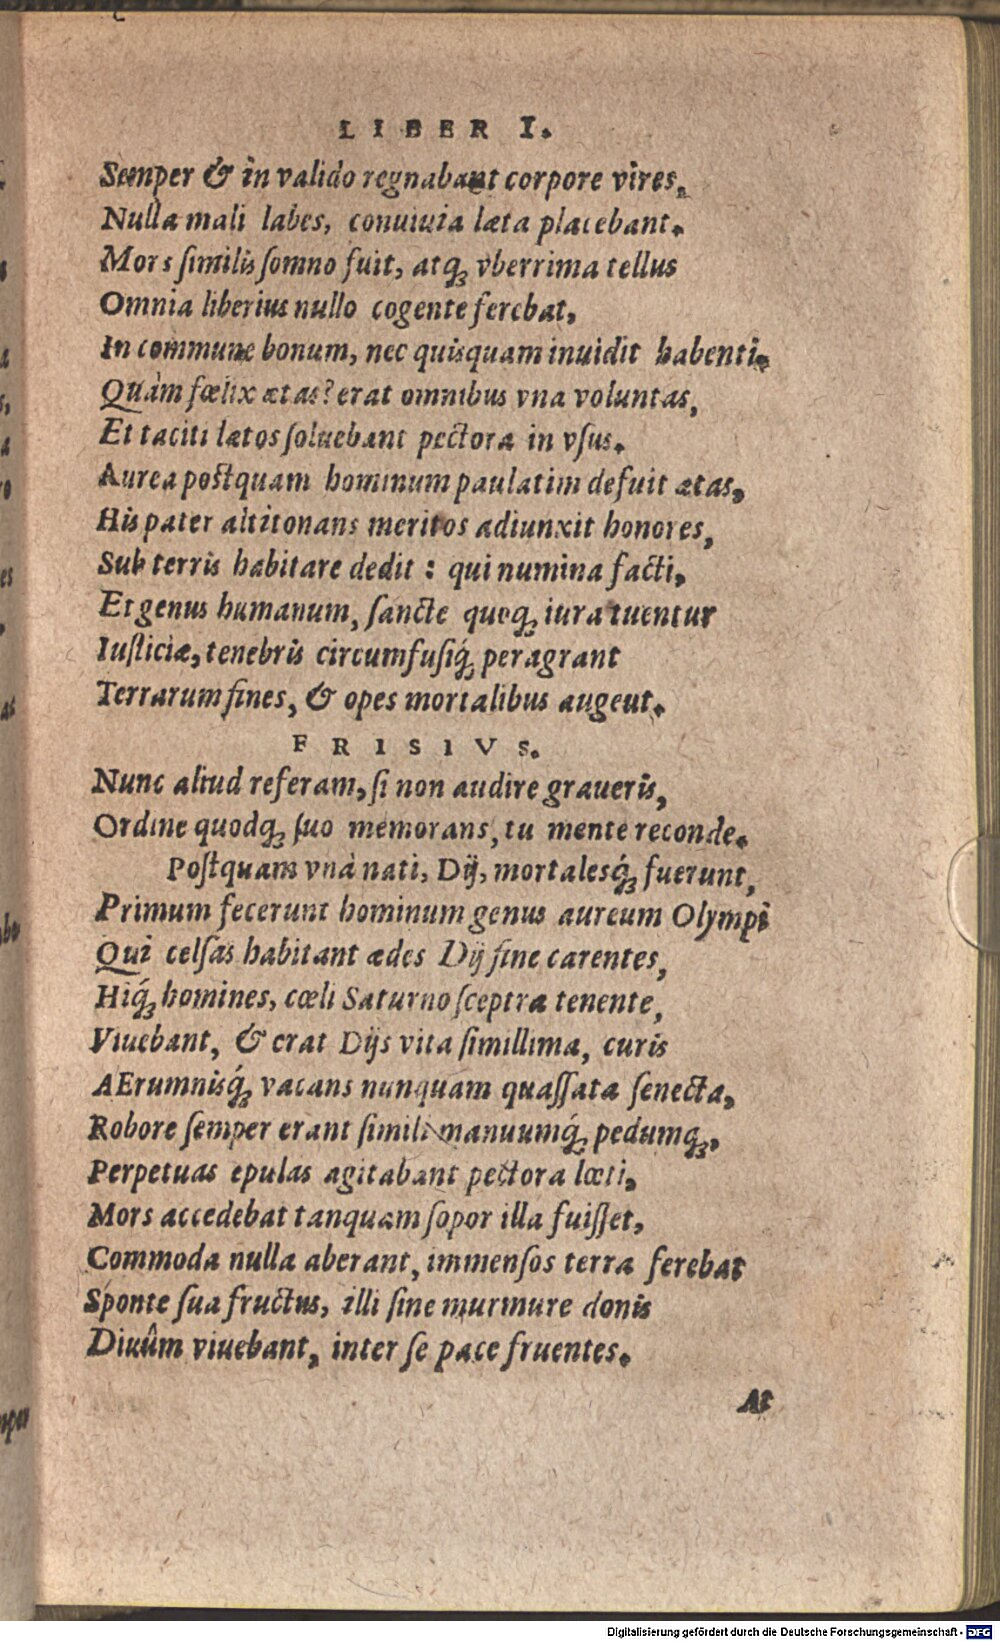 LIBER I.
Semper & in valido regnabant corpore vires,
Nulla mali labes, conuiuia læta placebant.
Mors ſimilis ſomno fuit, atq; vberrima tellus
Omnia liberius nullo cogente ferebat,
In commune bonum, nec quisquam inuidit habenti.
Quàm fœlix ætas? erat omnibus vna voluntas,
Et taciti lætos ſoluebant pectora in vſus.
Aurea poſtquam hominum paulatim defuit ætas,
His pater altitonans meritos adiunxit honores,
Sub terris habitare dedit : qui numina facti,
Et genus humanum, ſancte quoq; iura tuentur
Iuſticiæ, tenebris circumfuſiq́; peragrant
Terrarum fines, & opes mortalibus augent.
FRISIVS.
Nunc aliud referam, ſi non audire graueris,
Ordine quodq; ſuo memorans, tu mente reconde.
Poſtquam vnà nati, Dij, mortalesq́; fuerunt,
Primum fecerunt hominum genus aureum Olympi
Qui celſas habitant ædes Dij fine carentes,
Hiq́; homines, cœli Saturno ſceptra tenente,
Viuebant, & erat Dijs vita ſimillima, curis
AErumnisq́; vacans nunquam quaſſata ſenecta,
Robore ſemper erant ſimili manuumq́; pedumq;,
Perpetuas epulas agitabant pectora lœti,
Mors accedebat tanquam ſopor illa fuiſſet,
Commoda nulla aberant, immenſos terra ferebat
Sponte ſua fructus, illi ſine murmure donis
Diuûm viuebant, inter ſe pace fruentes.
At
Digitalisierung gefördert durch die Deutsche Forschungsgemeinschaft - DFG